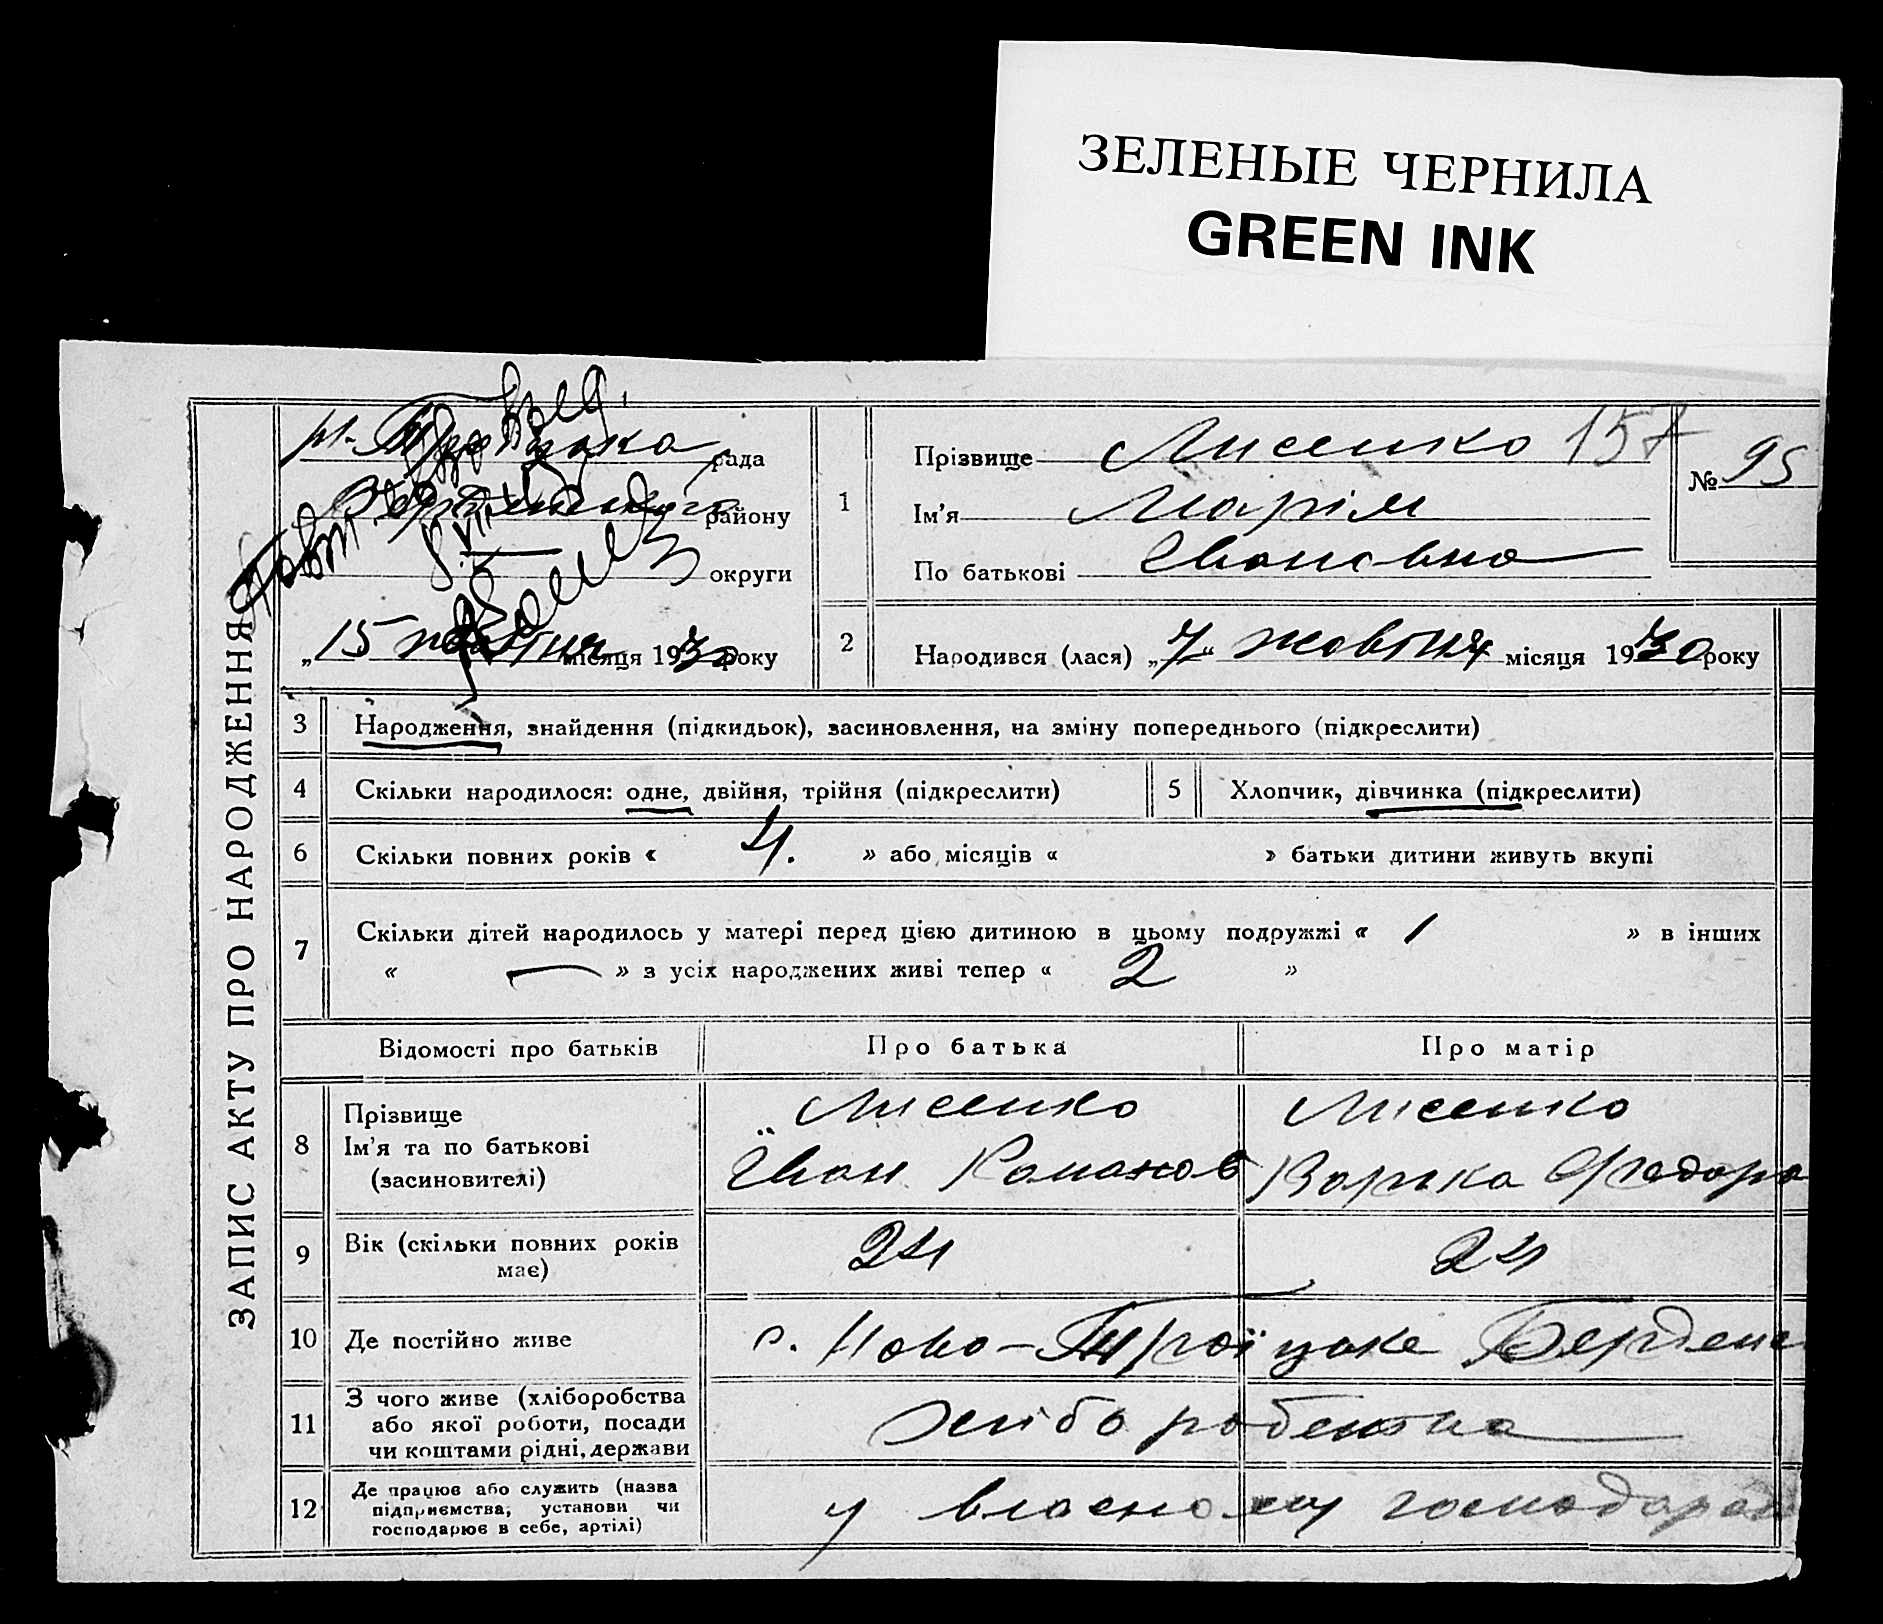 ЗЕЛЕНЫЕ ЧЕРНИЛА
GREEN INK
ЗАПИС АКТУ ПРО НАРОДЖЕННЯ
рада
району
округи
„15 жовтня місяця 1930 року
1
Прізвище Лисенко 157
№ 95
Ім'я Марія
По батькові Івановна
2
Народився (лася) „7" жовтня місяця 1930 року
3 Народження, знайдення (підкидьок), засиновлення, на зміну попереднього (підкреслити)
4 Скільки народилося: одне, двійня, трійня (підкреслити)
5 Хлопчик, дівчинка (підкреслити)
6 Скільки повних років « 4. » або місяців « » батьки дитини живуть вкупі
7 Скільки дітей народилось у матері перед цією дитиною в цьому подружжі « 1 » в інших
« — » з усіх народжених живі тепер « 2 »
Відомості про батьків
Про батька
Про матір
8 Прізвище
Ім'я та по батькові
(засиновителі)
Лисенко
Іван Романов
Лисенко
Варька Федоро
9 Вік (скільки повних років
має)
24
24
10 Де постійно живе
с. Ново-Троїцьке Берденс
11 З чого живе (хліборобства
або якої роботи, посади
чи коштами рідні, держави
12 Де працює або служить (назва
підприємства, установи чи
господарює в себе, артілі)
у власному господарс